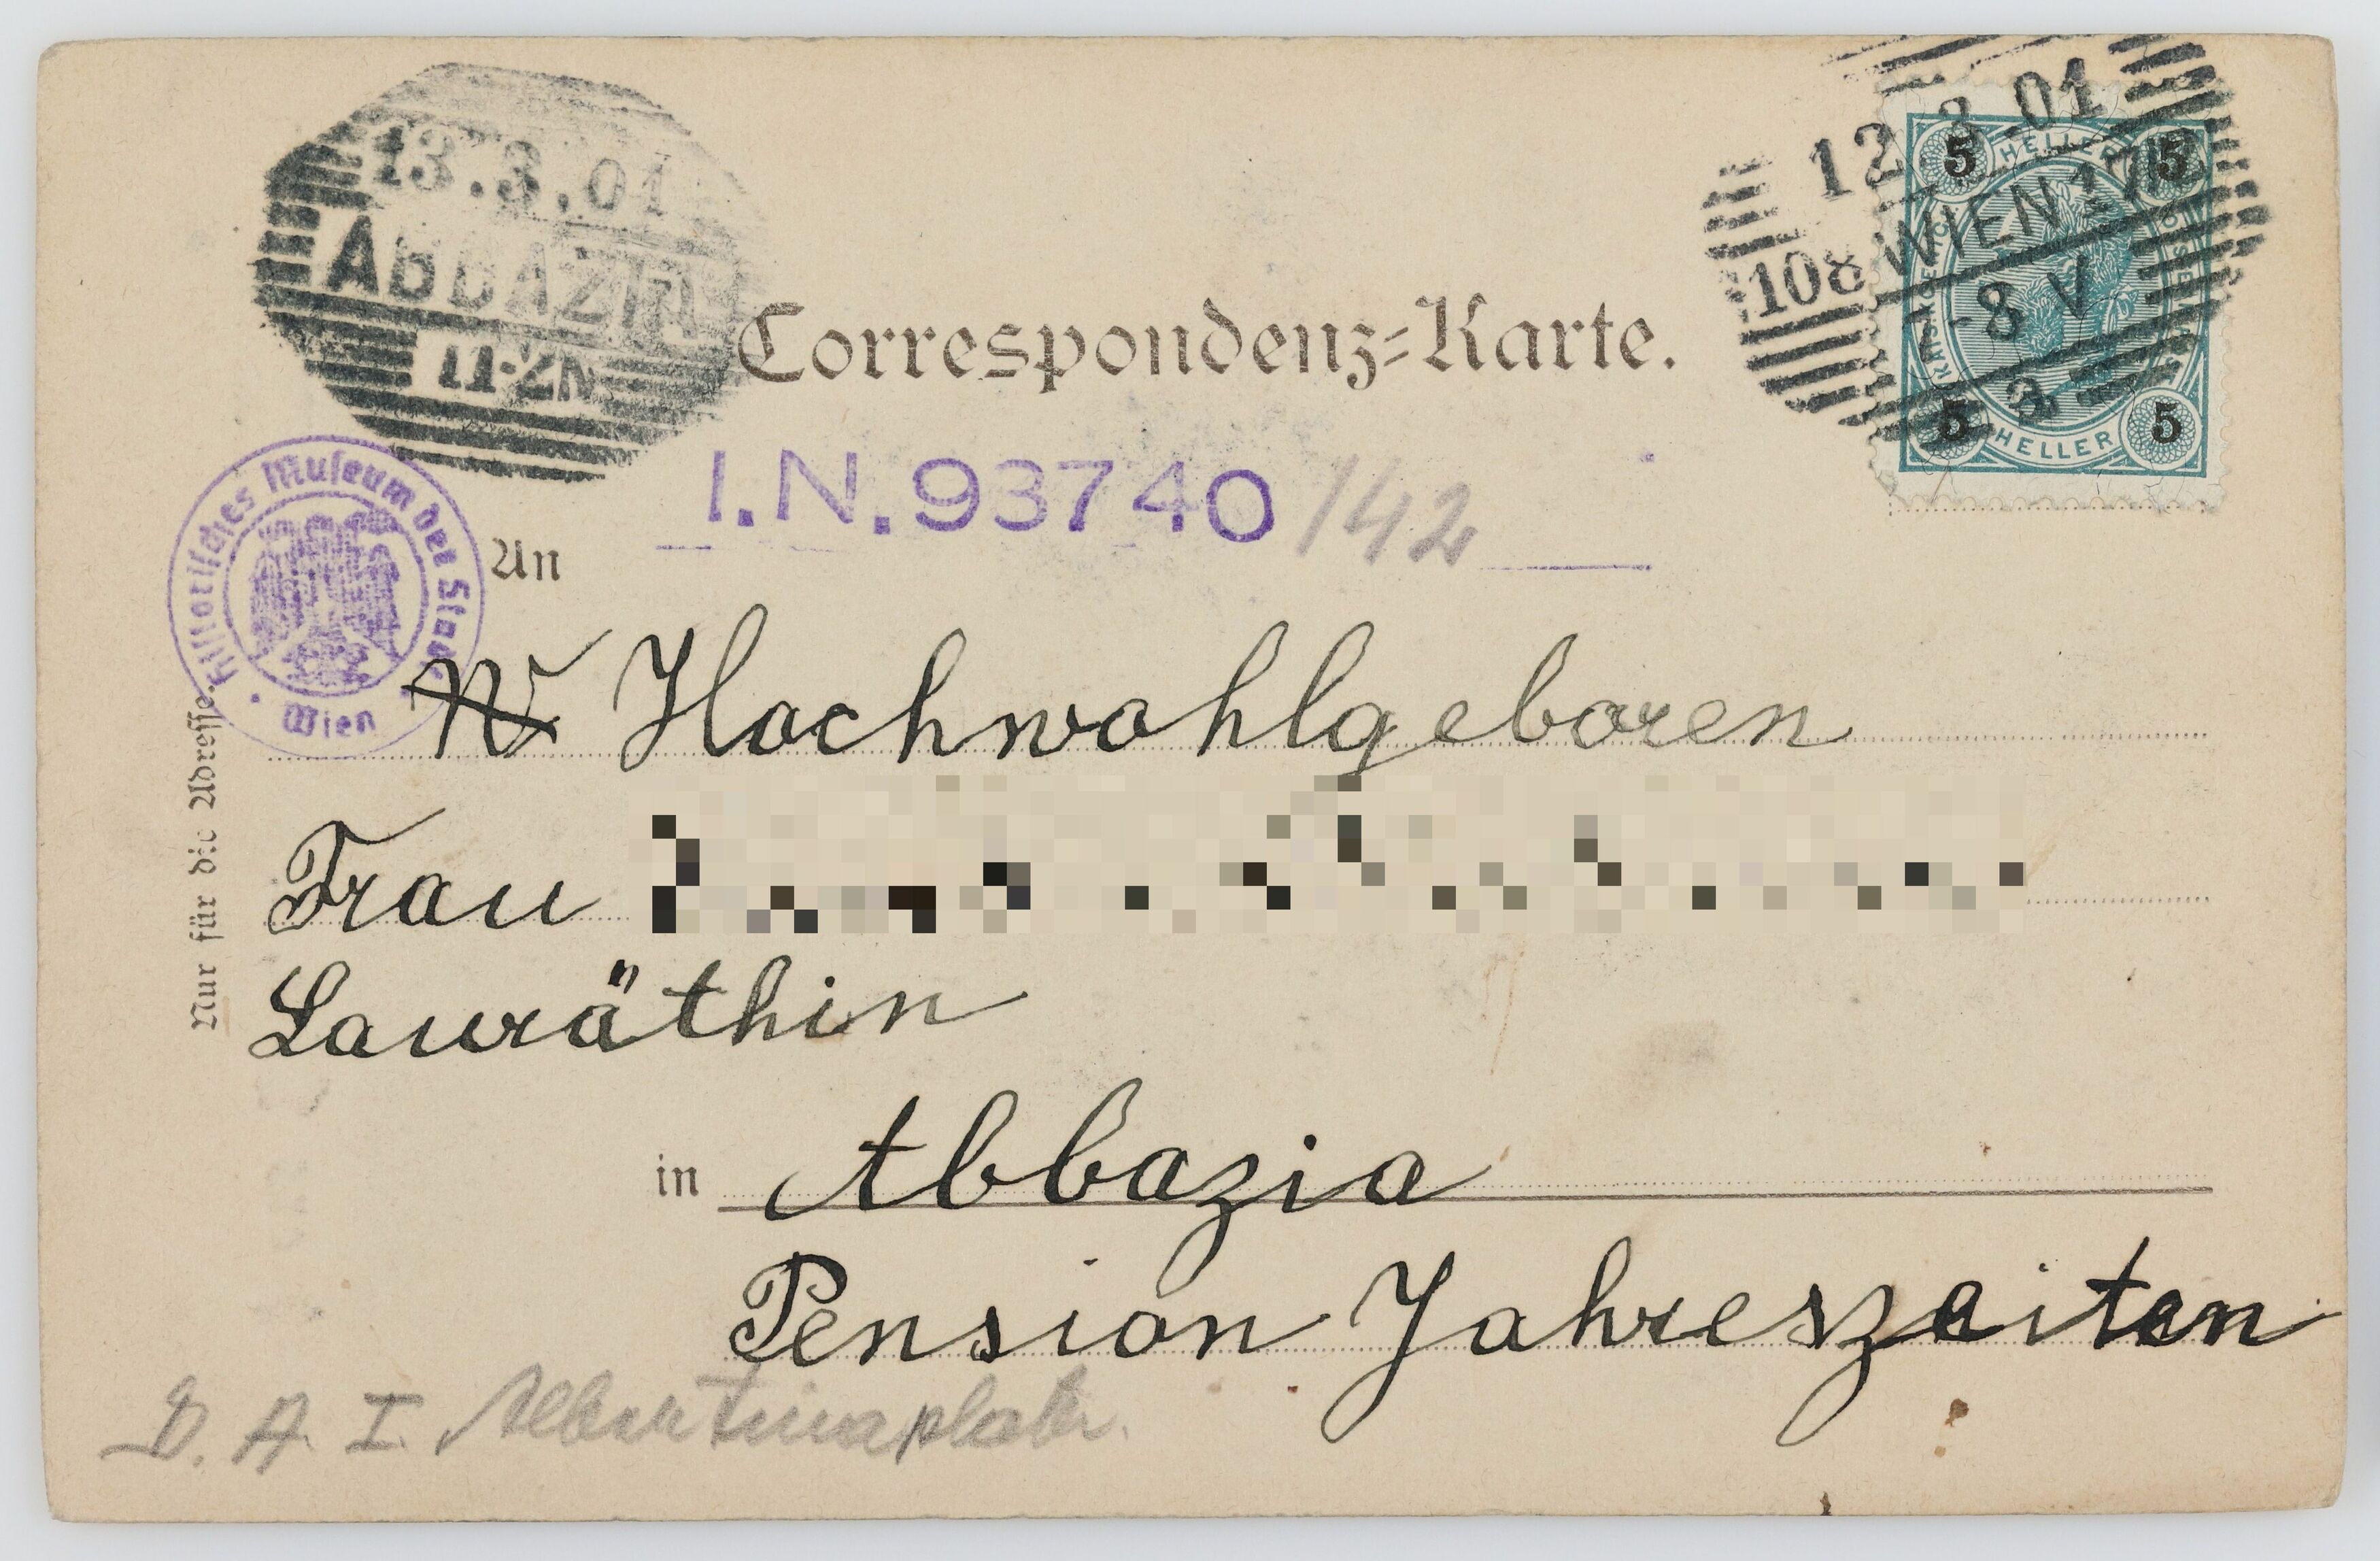 13.3.01
ABBAZIA
11-2N
12 3 01
108 WIEN 1
8 V
3
5 HELLER 5
5 HELLER 5
Correspondenz-Karte.
I.N. 93740/142
Historisches Museum der Stadt
Wien
An
Hochwohlgeboren
Frau
Lauräthin
in Abbazia
Pension Jahreszeiten
Nur für die Adresse.
D. A. I Albertinaplatz.